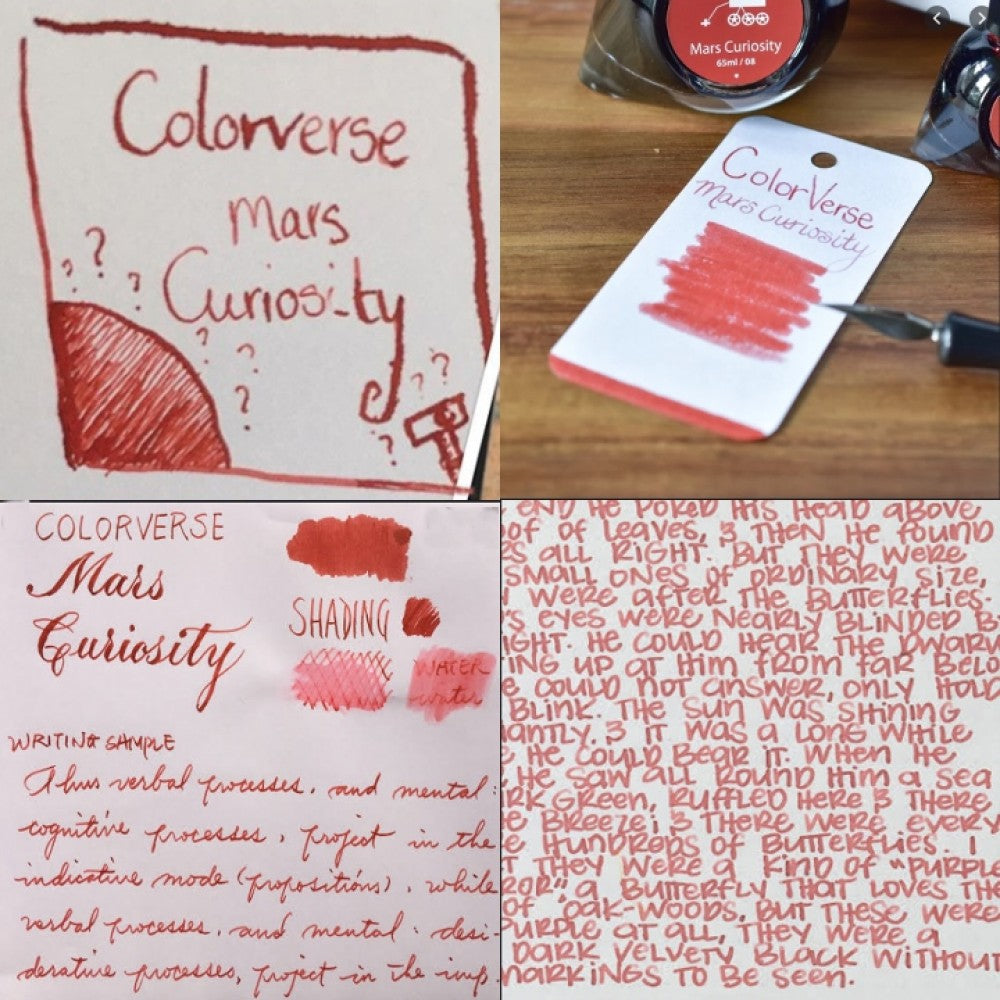 Colorverse
Mars
Curiosity
? ? ? ? ? ? ? ? ? ?
Mars Curiosity
65ml / 08
ColorVerse
Mars Curiosity
COLORVERSE
Mars
Curiosity
SHADING
WATER
water
WRITING SAMPLE
Thus verbal processes, and mental:
cognitive processes, project in the
indicative mode (propositions), while
verbal processes, and mental: desi-
derative processes, project in the imp.
END HE POKED HIS HEAD ABOVE
OF OF LEAVES, & THEN HE FOUND
ALL RIGHT. BUT THEY WERE
SMALL ONES OF ORDINARY SIZE,
WERE AFTER THE BUTTERFLIES.
EYES WERE NEARLY BLINDED B
IGHT. HE COULD HEAR THE DWARV
ING UP AT HIM FROM FAR BELO
E COULD NOT ANSWER, ONLY HOLD
BLINK. THE SUN WAS SHINING
IANTLY, & IT WAS A LONG WHILE
E HE COULD BEAR IT. WHEN HE
HE SAW ALL ROUND HIM A SEA
RK GREEN, RUFFLED HERE & THERE
E BREEZE; & THERE WERE EVERY
E HUNDREDS OF BUTTERFLIES. I
T THEY WERE A KIND OF "PURPLE
ROR", A BUTTERFLY THAT LOVES THE
OF OAK-WOODS, BUT THESE WERE
PURPLE AT ALL, THEY WERE A
DARK VELVETY BLACK WITHOUT
MARKINGS TO BE SEEN.